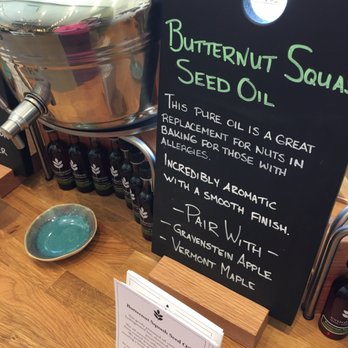 Butternut Squa
Seed Oil
This pure oil is a great
replacement for nuts in
baking for those with
allergies.
Incredibly aromatic
with a smooth finish.
- Pair With -
- Gravenstein Apple
- Vermont Maple
Butternut Squash Seed Oil